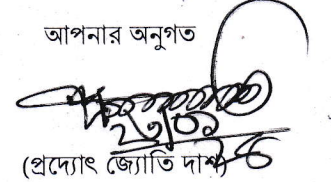 আপনার অনুগত
(প্রদ্যোৎ জ্যোতি দাশ)